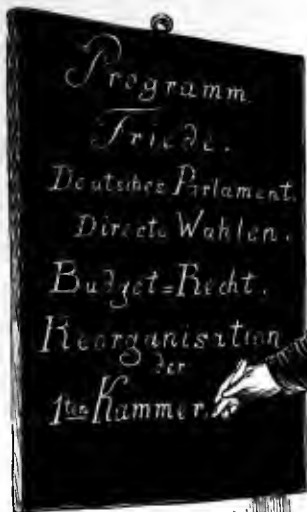 Programm
Friede.
Deutsches Parlament.
Directe Wahlen.
Budget=Recht.
Reorganisation
der
1ten Kammer.